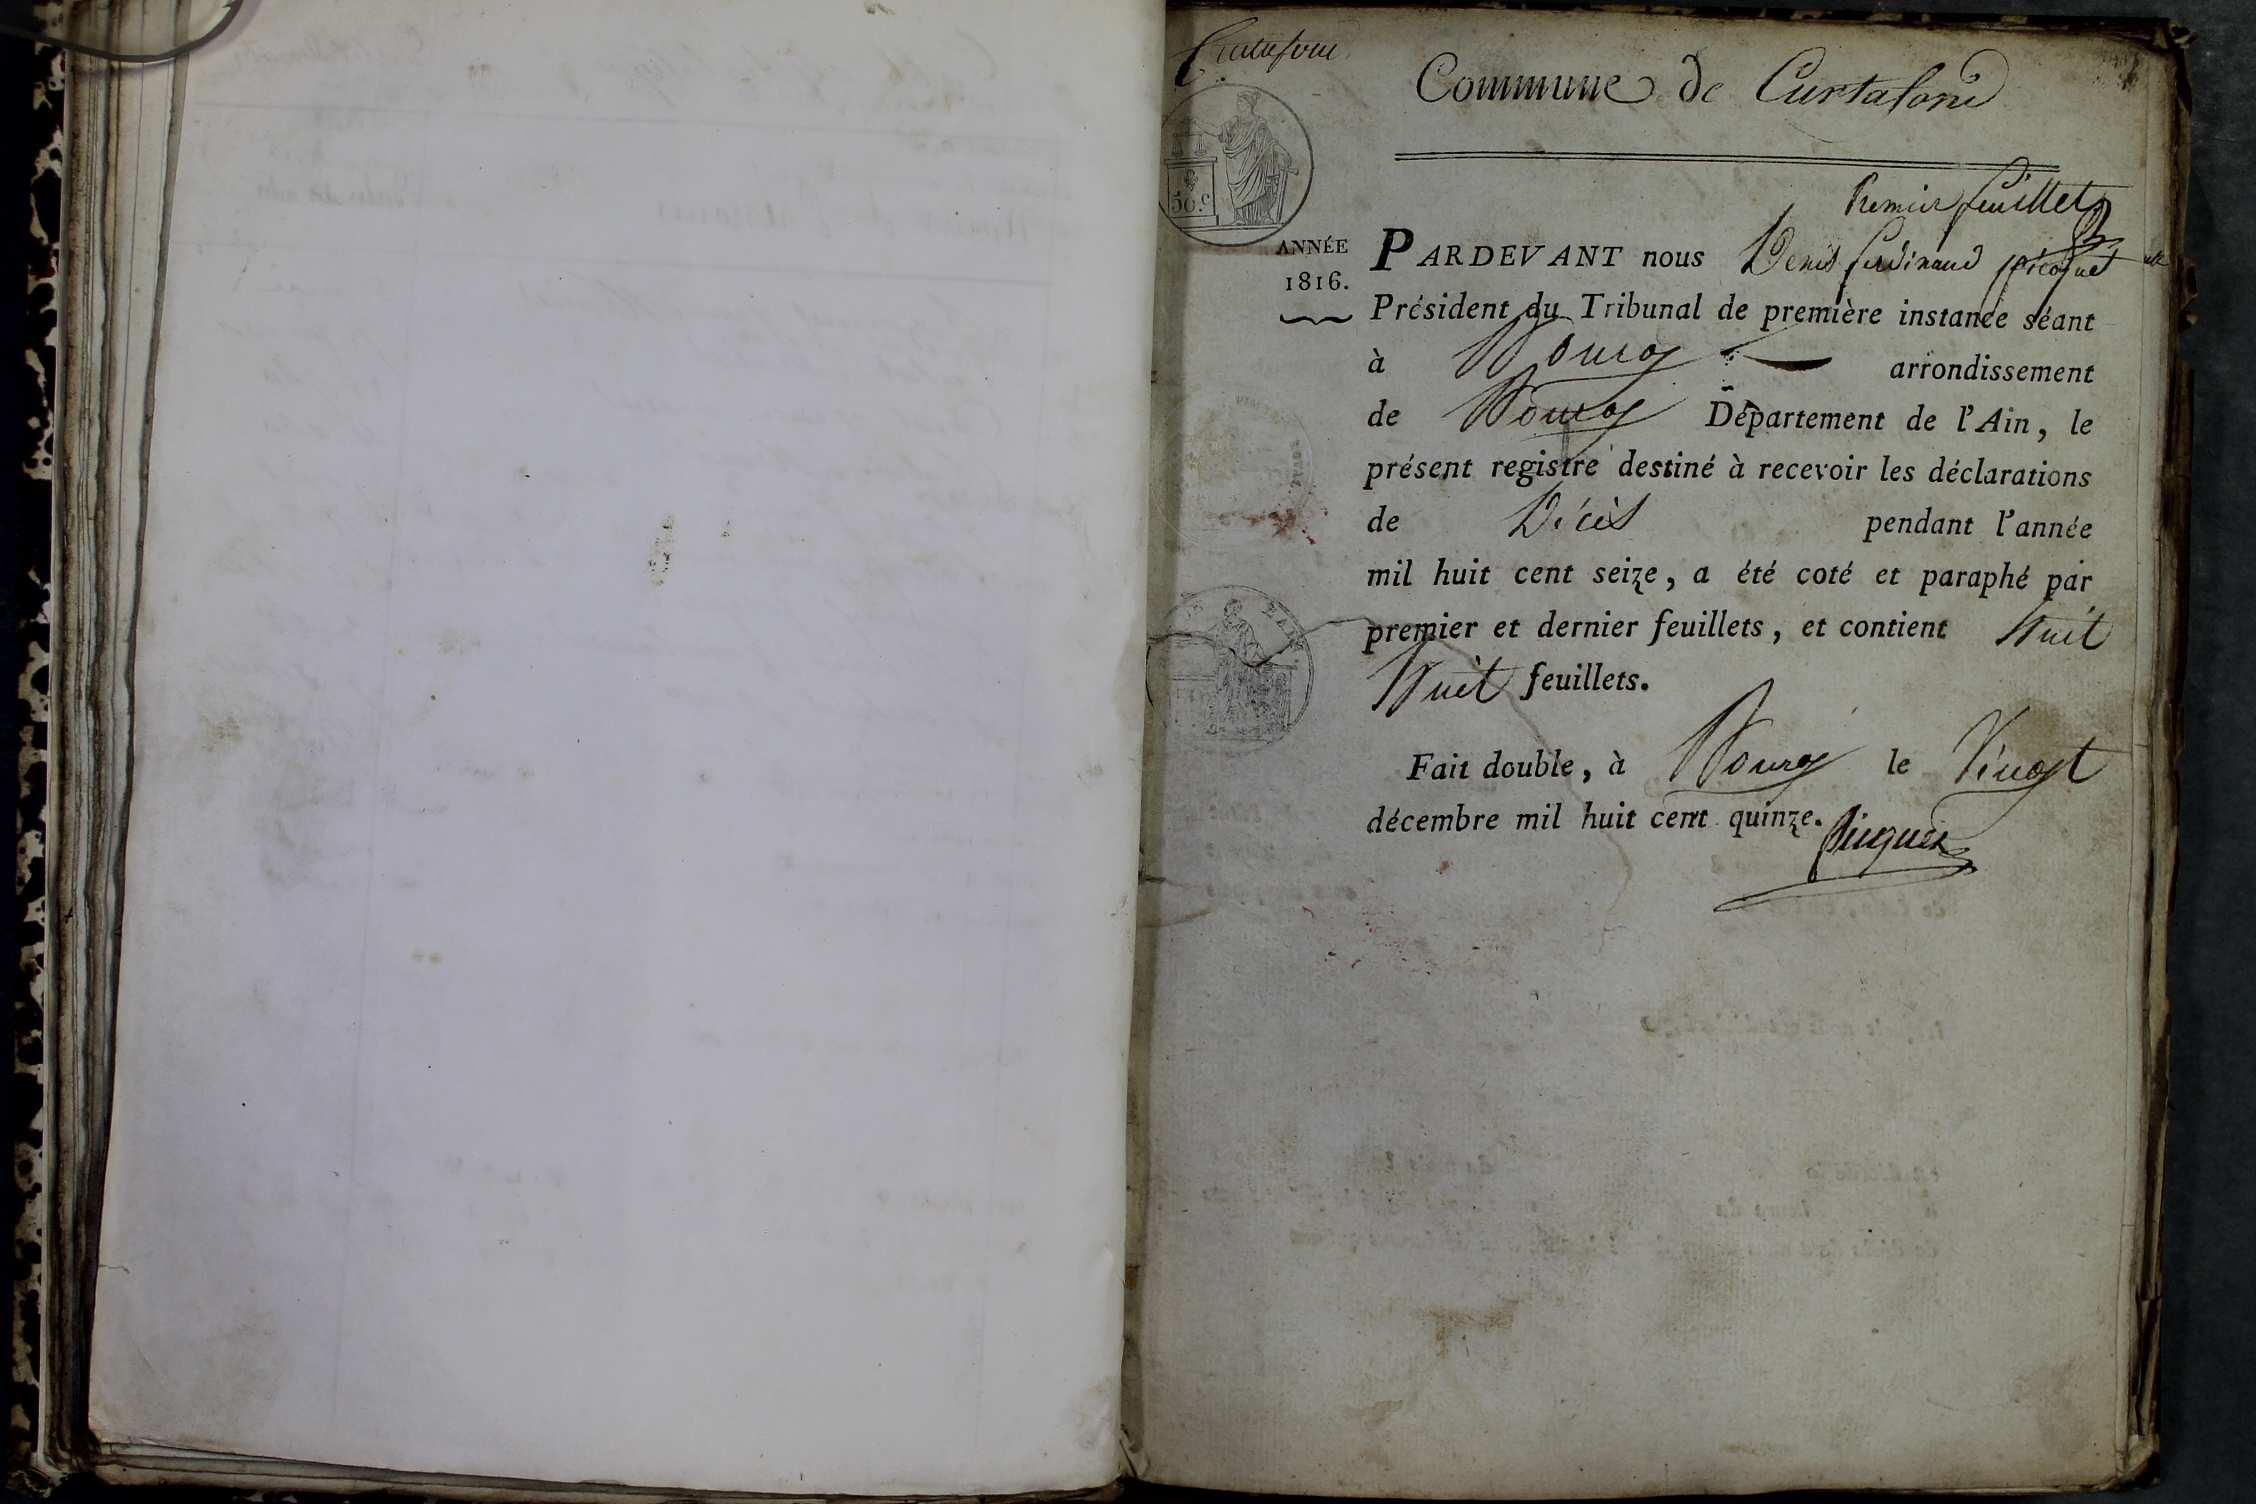 Curtafond
Commune de Curtafond
50 c.
Premier feuillet
ANNÉE
1816.
PARDEVANT nous Denis ferdinand picquet
Président du Tribunal de première instance séant
à Bourg arrondissement
de Bourg Département de l'Ain, le
présent registre destiné à recevoir les déclarations
de Décès pendant l'année
mil huit cent seize, a été coté et paraphé par
premier et dernier feuillets, et contient huit
huit feuillets.
Fait double, à Bourg le Vingt
décembre mil huit cent quinze.
Picquet